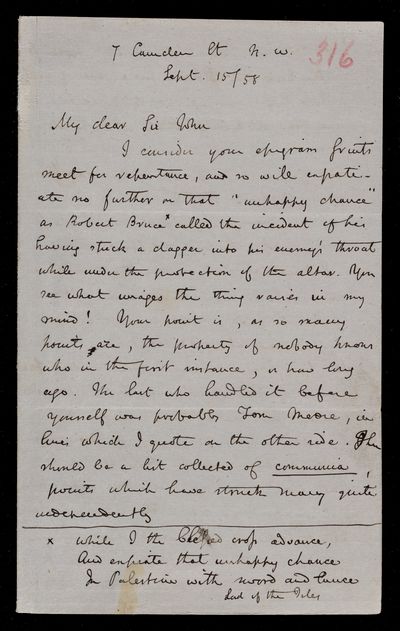 7 Camden St N. W.
316
Sept. 15/58
My dear Sir John
I consider your epigram fruits
meet for repentance, and so will expati-
ate no further on that "unhappy chance"
as Robert Bruce x called the incident of his
having stuck a dagger into his enemy's throat
while under the protection of the altar. You
see what images the thing raises in my
mind! Your point is, as so many
points are, the property of nobody knows
who in the first instance, or how long
ago. The last who handled it before
yourself was probably Tom Moore, in
lines which I quote on the other side. There
should be a list collected of communia,
points which have struck many quite
independently
x while I the blessed cross advance,
And expiate that unhappy chance
In Palestine with sword and lance
Lord of the Isles